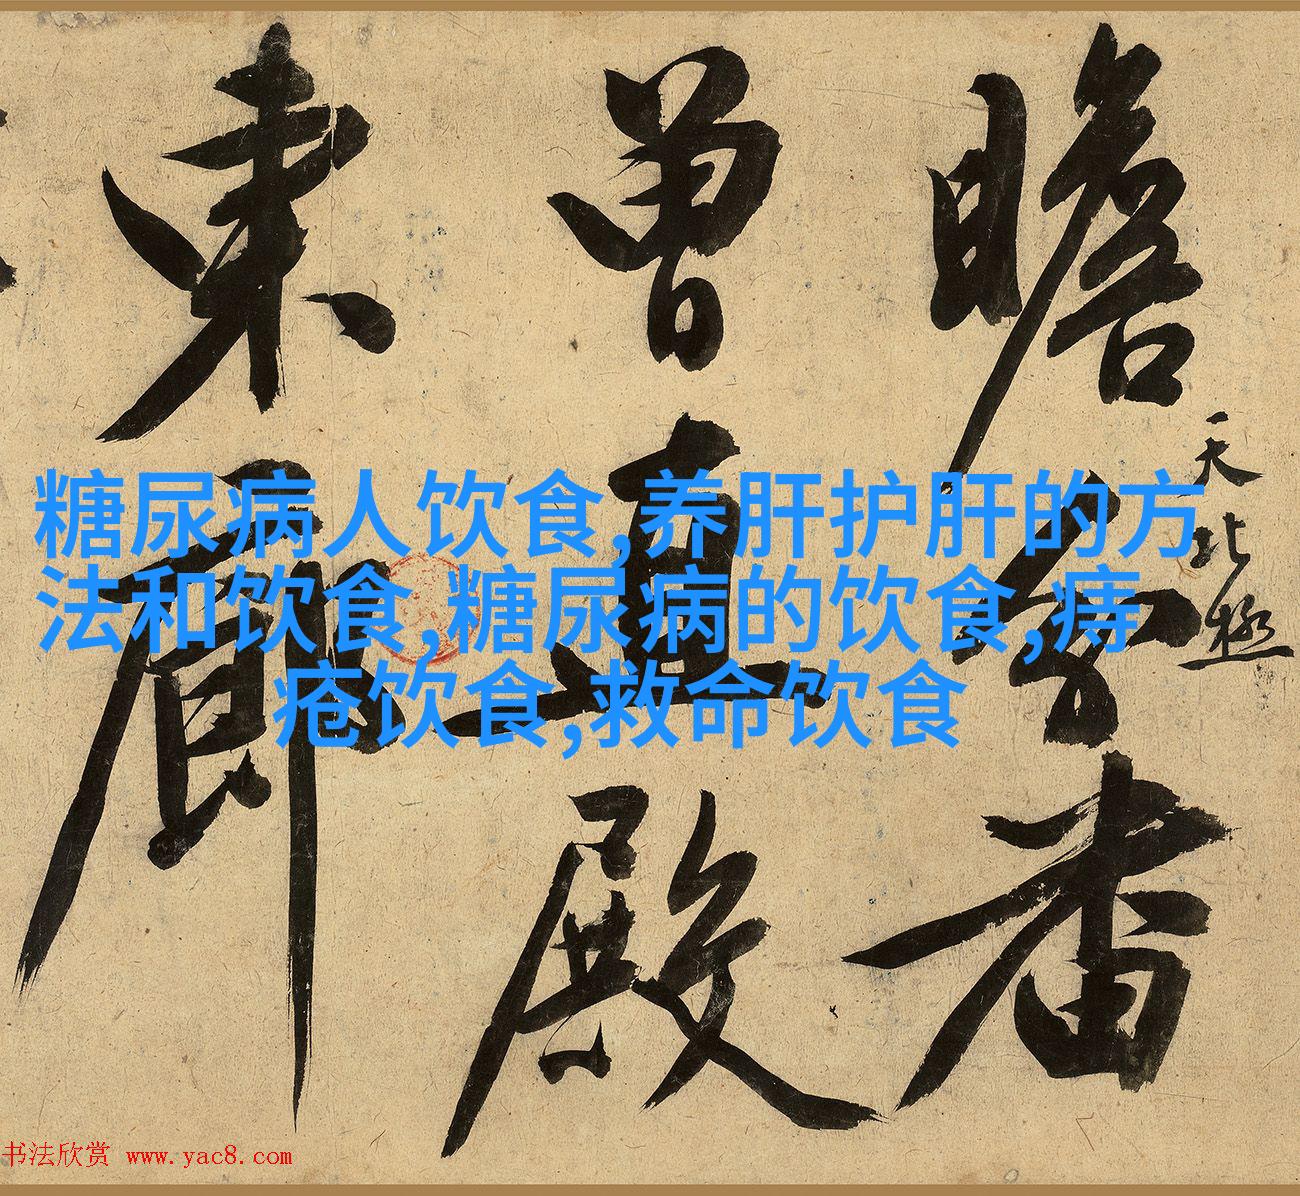 瞻望者
天北極
曾直殿
東廊
糖尿病人饮食,养肝护肝的方
法和饮食,糖尿病的饮食,痔
疮饮食,救命饮食
书法欣赏 www.yac8.com